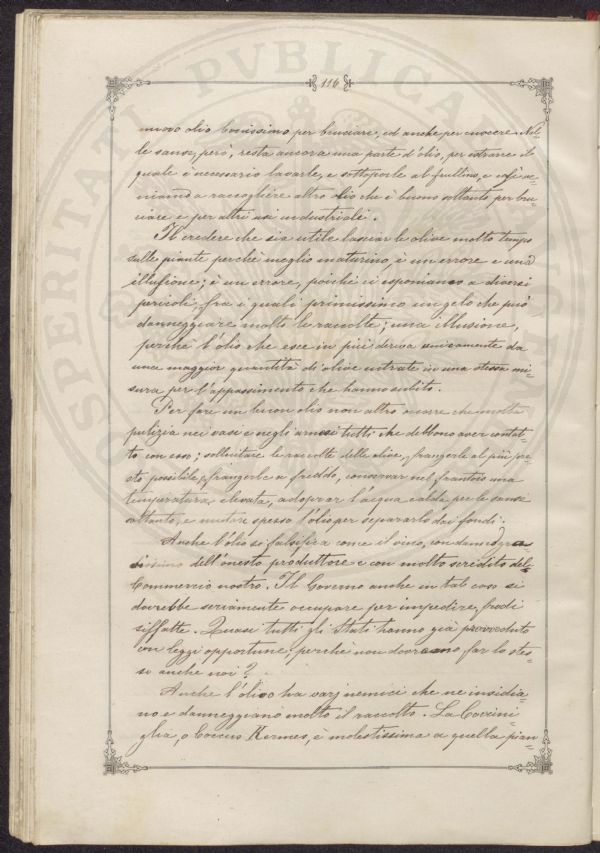 116
nuovo olio bonissimo per bruciare, ed anche per cuocere. Nel-
le sanse, però, resta ancora una parte d'olio, per estrarre il
quale è necessario lavarle, e sottoporle al frullino, e così ar-
rivando a raccogliere altro olio che è buono soltanto per bru-
ciare e per altri usi industriali.
Il credere che sia utile lasciar le olive molto tempo
sulle piante perchè meglio maturino, è un errore e una
illusione; è un errore, poichè si espongano a diversi
pericoli, fra i quali primissimo un gelo che può
danneggiare molto le raccolte; una illusione,
perchè l'olio che esce in più deriva unicamente da
una maggior quantità di olive entrate in una stessa mi-
sura per l'appassimento che hanno subito.
Per fare un buon olio non altro occorre che molta
pulizia nei vasi e negli arnesi tutti che debbono aver contat-
to con esso; sollecitare le raccolte delle olive, frangerle al più pre-
sto possibile, frangerle a freddo, conservar nel frantoio una
temperatura elevata, adoprar l'acqua calda per le sanse
soltanto, e mutare spesso l'olio per separarlo dai fondi.
Anche l'olio si falsifica come il vino, con danno gra-
vissimo dell'onesto produttore e con molto scredito del
Commercio nostro. Il Governo anche in tal caso si
dovrebbe seriamente occupare per impedire frodi
siffatte. Quasi tutti gli Stati hanno già provveduto
con leggi opportune; perchè non dovremo far lo stes-
so anche noi?
Anche l'olivo ha varj nemici che ne insidia-
no e danneggiano molto il raccolto. La Coccini-
glia, o Coccus Kermes, è molestissima a quella pian-
SPERITATI PVBLICAE